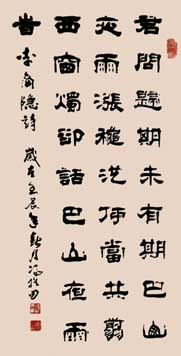 君問歸期未有期巴山
夜雨漲穐池何當共翦
西窗燭卻話巴山夜雨
旹 李商隱詩 歲在壬辰年秋月